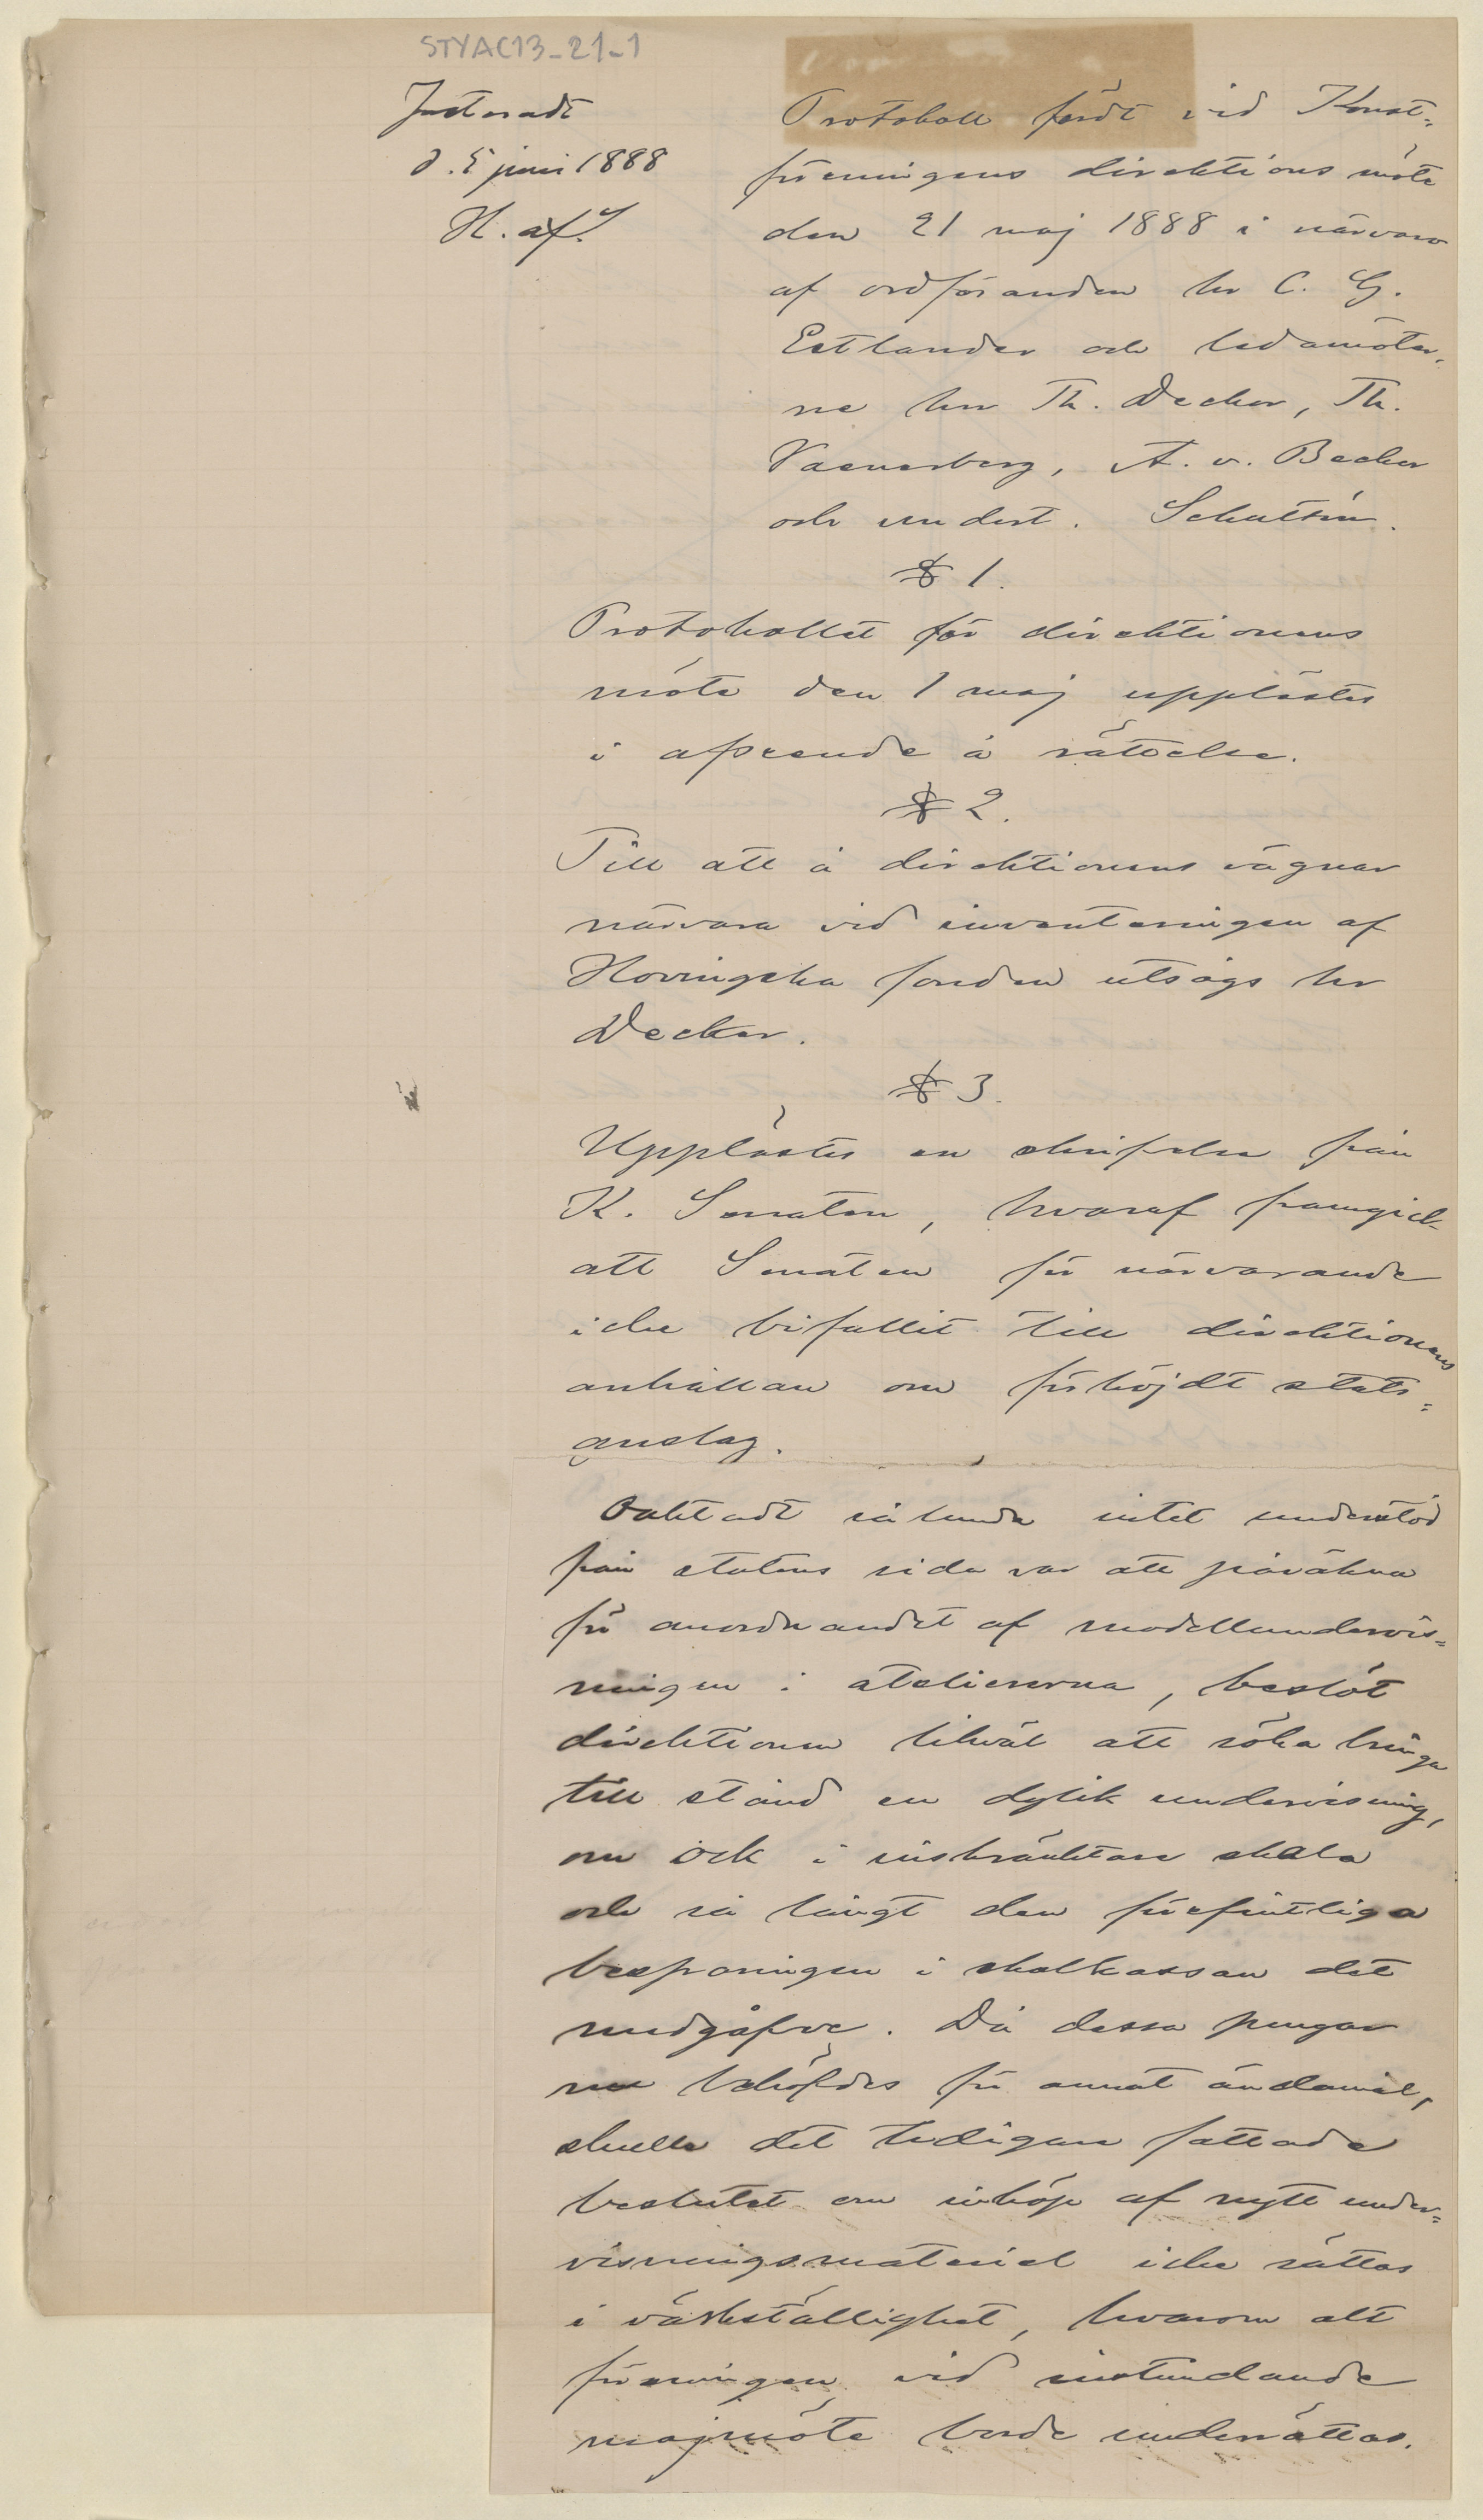 STYAC13_21_1
Justeradt
d. 5 juni 1888
H. af S.
Protokoll fördt vid Konst-
föreningens direktions möte
den 21 maj 1888 i närvaro
af ordföranden hr C. G.
Estlander och ledamöter-
ne hrr Th. Decker, Th.
Waenerberg, A. v. Becker
och undert. Schultén.
§ 1.
Protokollet för direktionens
möte den 1 maj upplästes
i afseende å rättelse.
§ 2.
Till att å direktionens vägnar
närvara vid inventeringen af
Hovingska fonden utsågs hr
Decker.
§ 3.
Upplästes en skrifvelse från
K. Senaten, hvaraf framgick
att Senaten för närvarande
icke bifallit till direktionens
anhållan om förhöjdt stats-
anslag.
Oaktadt sålunda intet understöd
från statens sida var att påräkna
för anordnandet af modellundervis-
ningen i ateliererna, beslöt
direktionen likväl att söka bringa
till stånd en dylik undervisning,
om ock i inskränktare skala
och så långt den förefintliga
besparingen i skolkassan det
medgåfve. Då dessa pengar
nu behöfdes för annat ändamål,
skulle det tidigare fattade
beslutet om inköp af nytt under-
visningsmateriel icke sättas
i värkställighet, hvarom att
föreningen vid instundande
majmöte borde underrättas.